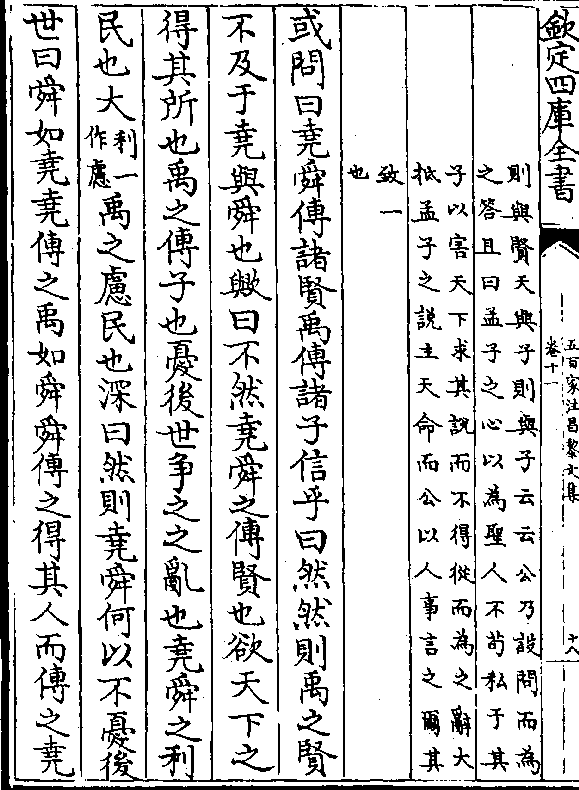 欽定四庫全書
五百家注昌黎文集
卷十一
十八
則與賢天與子則與子云云公乃設問而為
之答且曰孟子之心以為聖人不茍私于其
子以害天下求其說而不得從而為之辭大
抵孟子之說主天命而公以人事言之爾其
致一
也
或問曰堯舜傳諸賢禹傳諸子信乎曰然然則禹之賢
不及于堯與舜也歟曰不然堯舜之傳賢也欲天下之
得其所也禹之傳子也憂後世爭之之亂也堯舜之利
民也大利一作慮禹之慮民也深曰然則堯舜何以不憂後
世曰舜如堯堯傳之禹如舜舜傳之得其人而傳之堯